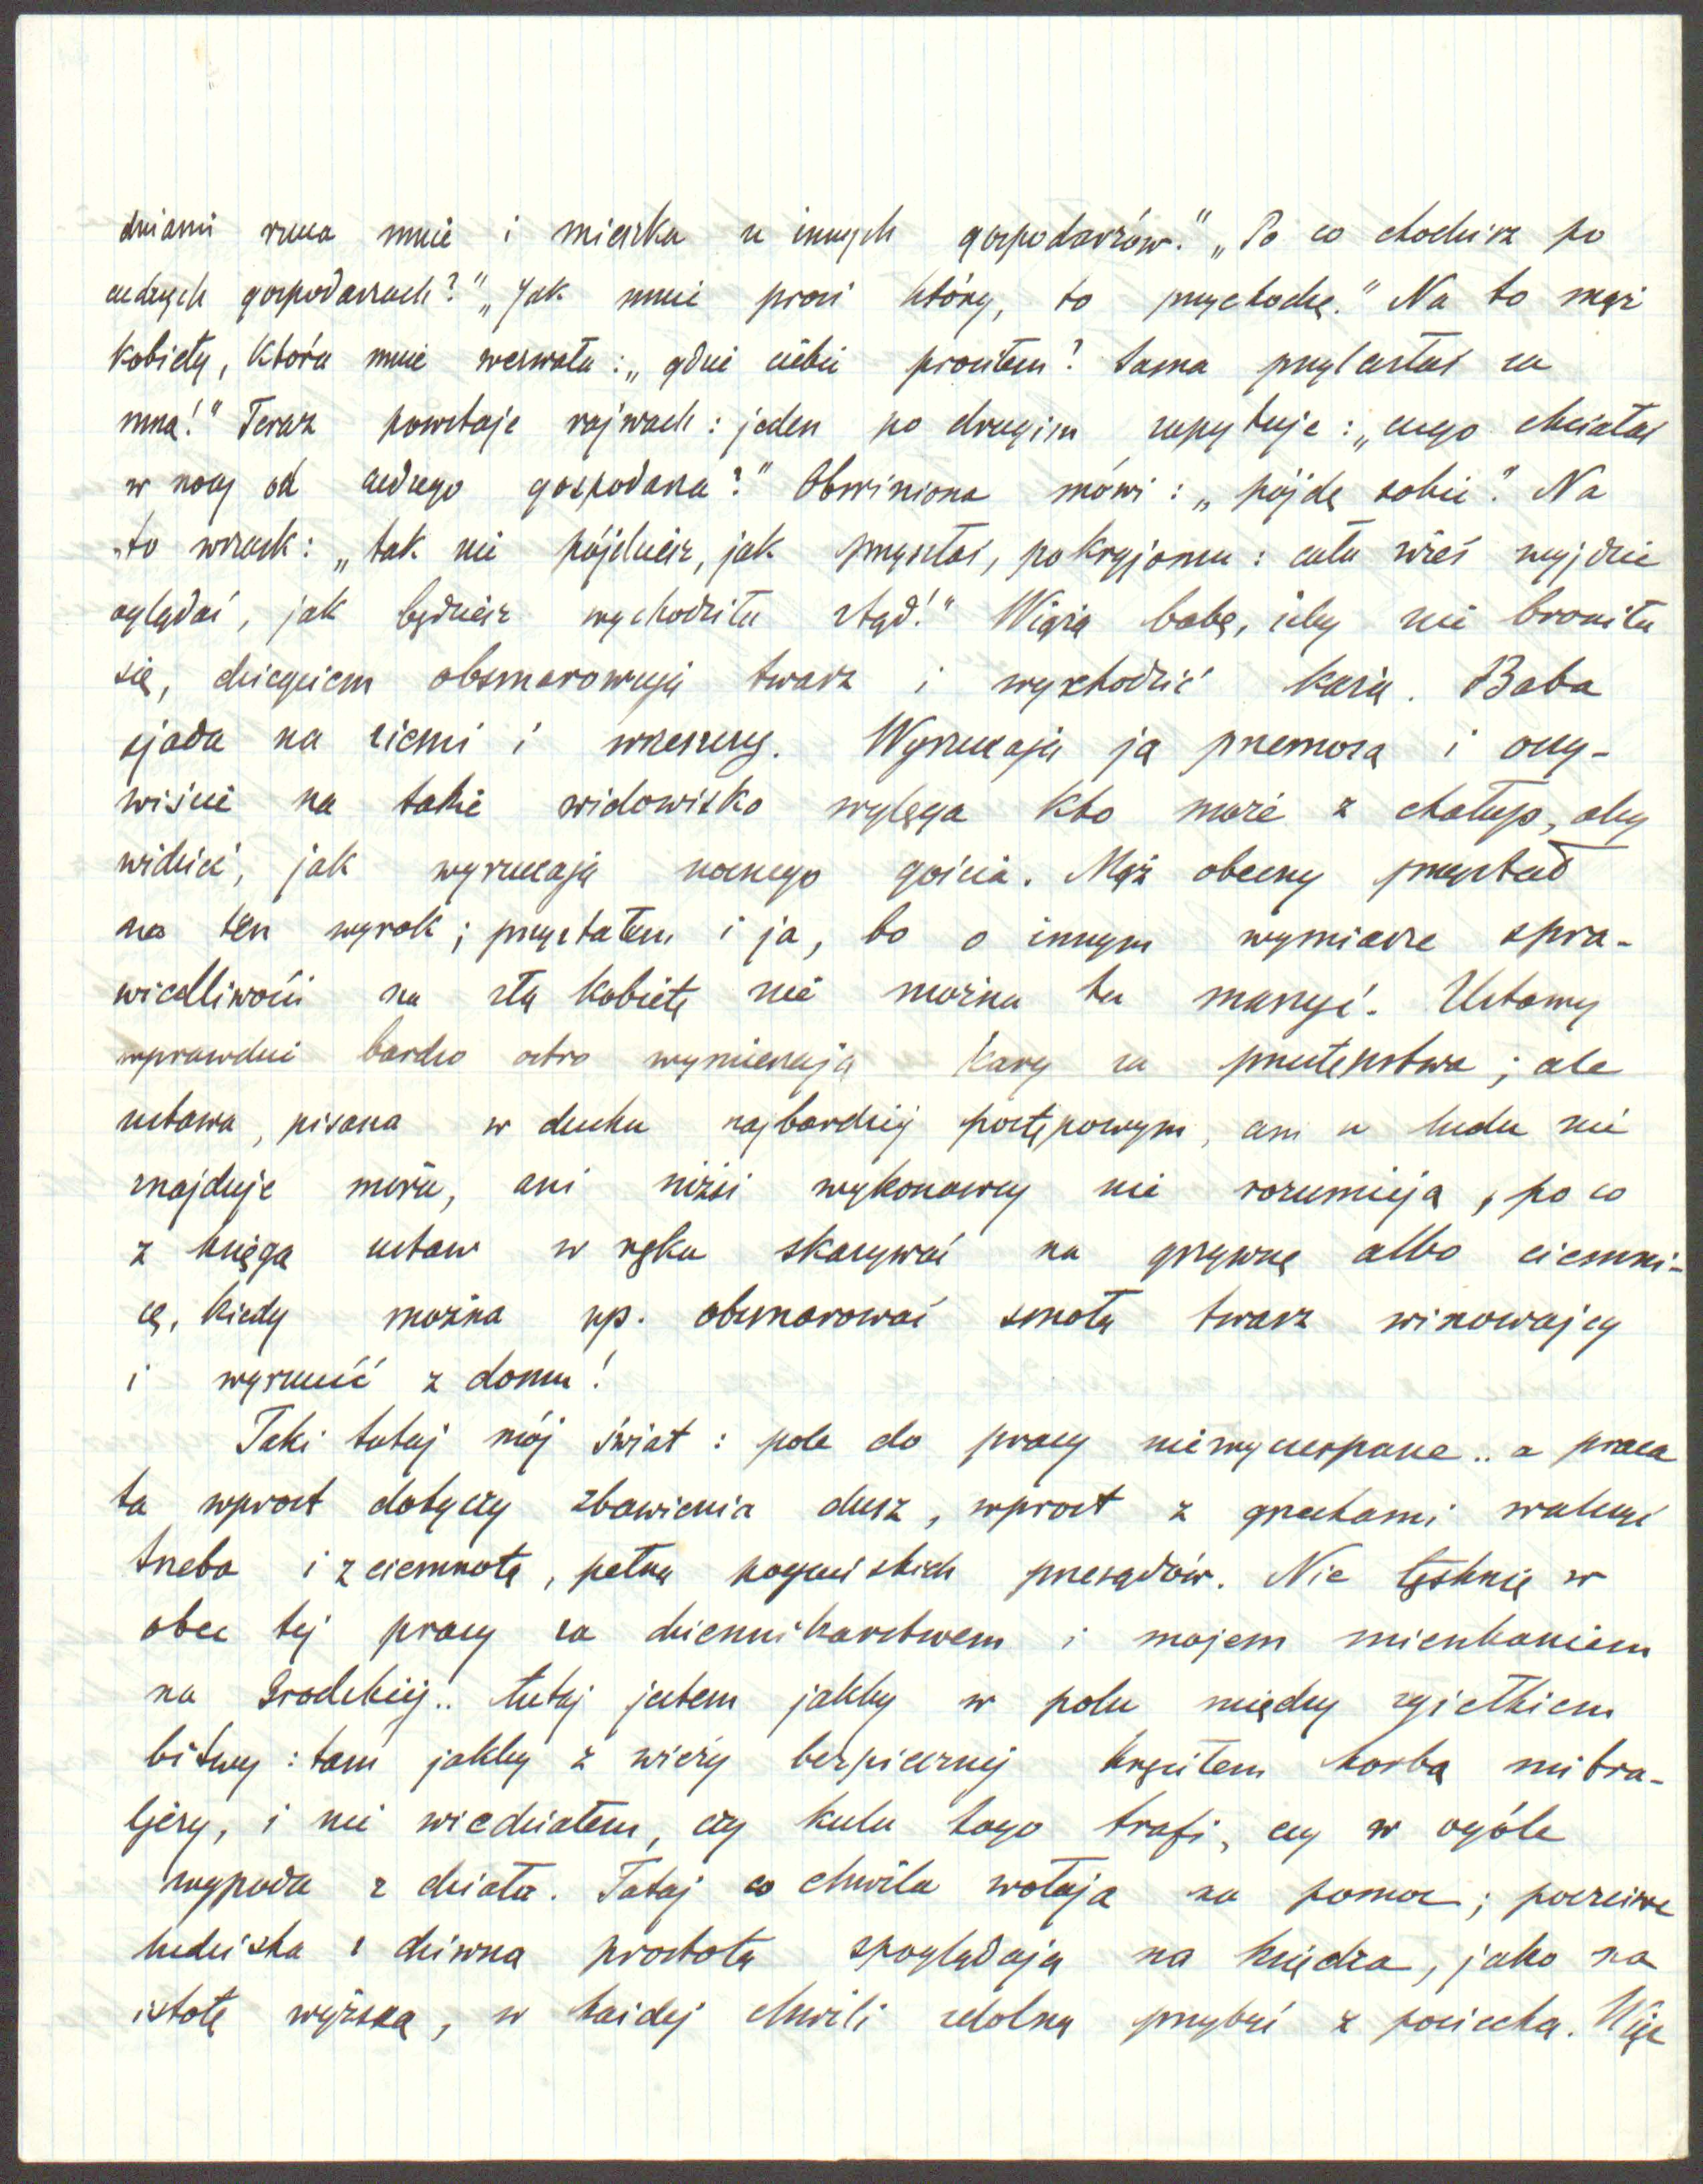 dniami rzuca mnie i mieszka u innych gospodarzów." „Po co chodzisz po
cudzych gospodarzach?" „Jak mnie prosi który, to przychodzę." Na to mąż
kobiety, która mnie wezwała: „gdzie ciebie prosiłem? sama przylazłaś za
mną!" Teraz powstaje rajwach: jeden po drugim zapytuje: „czego chciałaś
w nocy od cudzego gospodarza?" Obwiniona mówi: „pójdę sobie". Na
to wrzask: „tak nie pójdziesz, jak przyszłaś, pokryjomu: cała wieś wyjdzie
oglądać, jak będziesz wychodziła stąd!" Wiążą babę, żeby nie broniła
się, dziegciem obsmarowują twarz i wychodzić każą. Baba
sjada na ziemi i wrzeszczy. Wyrzucają ją przemocą i oczy-
wiście na takie widowisko wylęga kto może z chałup, aby
widzieć, jak wyrzucają nocnego gościa. Mąż obecny przystał
na ten wyrok; przystałem i ja, bo o innym wymiarze spra-
wiedliwości na złą kobietę nie można tu marzyć. Ustawy
wprawdzie bardzo ostro wymierzają kary za przestępstwa; ale
ustawa, pisana w duchu najbardziej postępowym, ani u ludu nie
znajduje miru, ani niżsi wykonawcy nie rozumieją, po co
z księgą ustaw w ręku skazywać na grzywnę albo ciemni-
cę, kiedy można np. obsmarować smołą twarz winowajcy
i wyrzucić z domu!
Taki tutaj mój świat: pole do pracy niewyczerpane.. a praca
ta wprost dotyczy zbawienia dusz, wprost z grzechami walczyć
trzeba i z ciemnotą, pełną pogańskich przesądów. Nie tęsknię w
obec tej pracy za dziennikarstwem i mojem mieszkaniem
na Grodzkiej.. tutaj jestem jakby w polu między zgiełkiem
bitwy: tam jakby z wieży bezpiecznej kręciłem korbą mitra-
ljezy, i nie wiedziałem, czy kula kogo trafi, czy w ogóle
wypada z działa. Tutaj co chwila wołają na pomoc; poczciwe
ludziska z dziwną prostotą spoglądają na księdza, jako na
istotę wyższą, w każdej chwili zdolną przybyć z pociechą. Więc